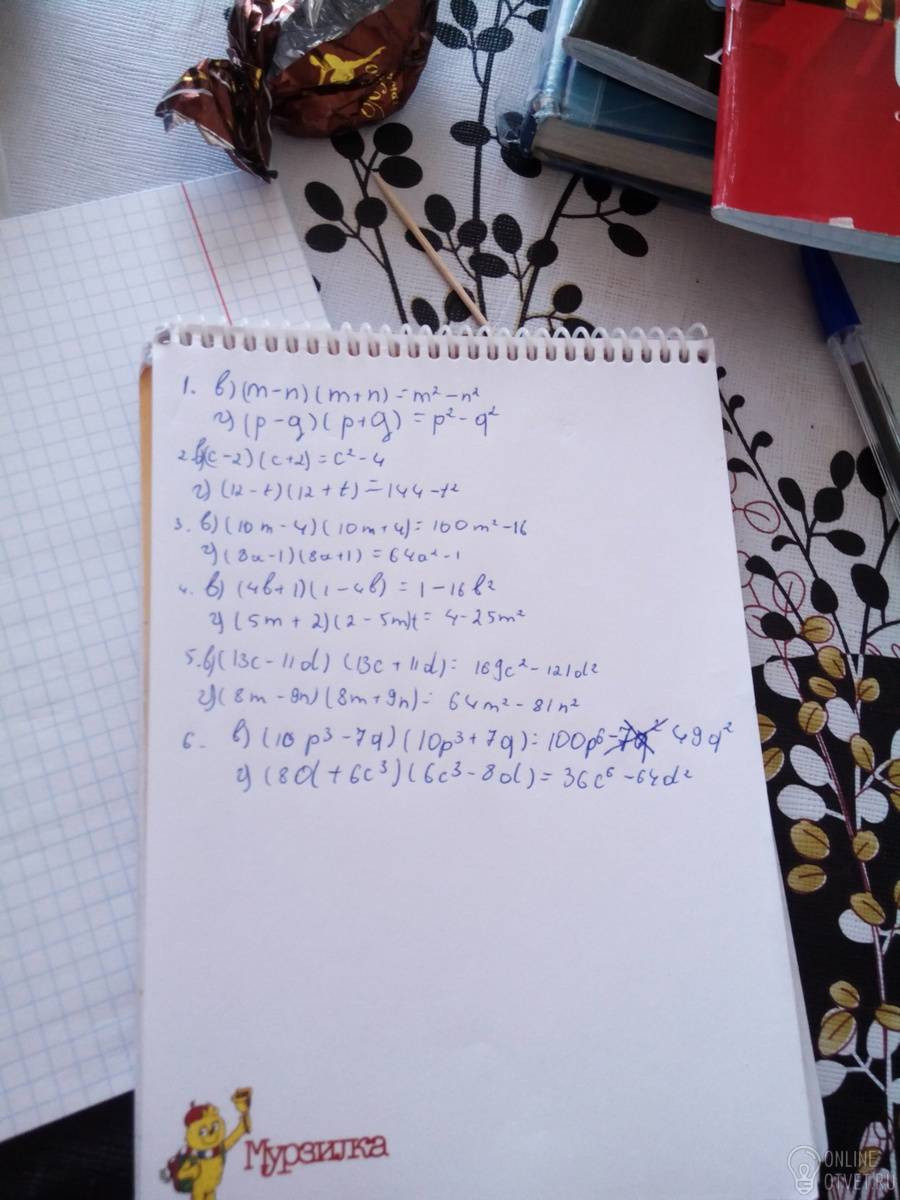 1. в) (m-n)(m+n) = m² - n²
г) (p-q)(p+q) = p² - q²
2. в) (c-2)(c+2) = c² - 4
г) (12-t)(12+t) = 144-t²
3. в) (10m-4)(10m+4) = 100m² - 16
г) (8a-1)(8a+1) = 64a² - 1
4. в) (4b+1)(1-4b) = 1-16b²
г) (5m+2)(2-5m) = 4-25m²
5. в) (13c-11d)(13c+11d) = 169c² - 121d²
г) (8m-9n)(8m+9n) = 64m² - 81n²
6. в) (10p³-7q)(10p³+7q) = 100p⁶ - 49q²
г) (8d+6c³)(6c³-8d) = 36c⁶ - 64d²
Мурзилка
ONLINE
OTVET.RU